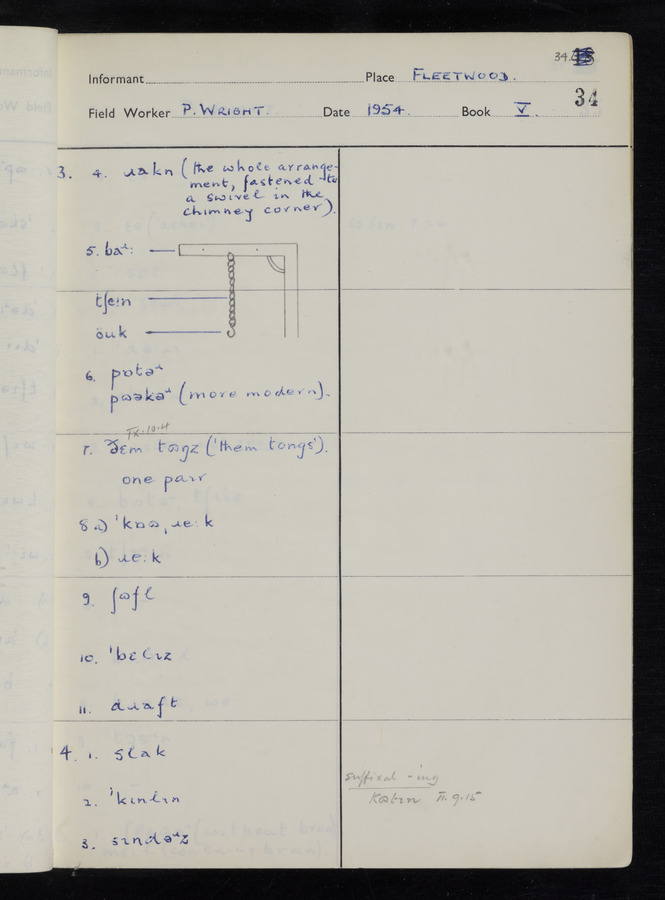 34.
34
Informant Place FLEETWOOD.
Field Worker P. WRIGHT. Date 1954. Book V.
3. 4. ɹakn (the whole arrange-
ment, fastened to
a swivel in the
chimney corner).
5. baɹ:
tʃe:n
öuk
6. pɒtəɹ
pɷəkəɹ (more modern).
IX.10.4
7. ðɛm tɷŋz ('them tongs').
one pair
8 a) ˈkɒɷˌɹe:k
b) ɹe:k
9. ʃɷfl
10. ˈbɛlɪz
11. dɹaft
4. 1. slak
2. ˈkɪnlɪn
3. sɪndəɹz
suffixal -ing
II.9.15